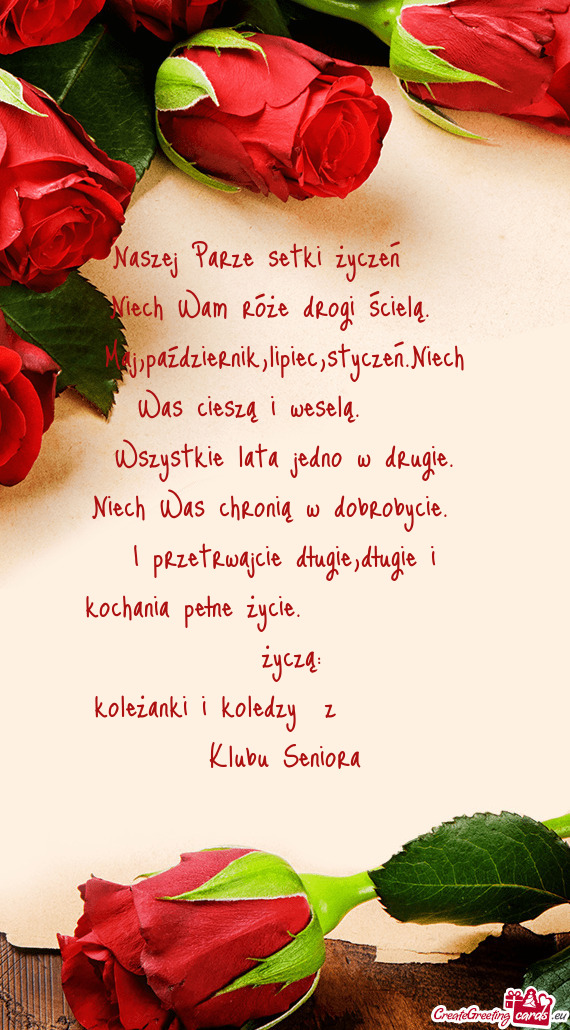 Naszej Parze setki życzeń
Niech Wam róże drogi ścielą.
Maj,październik,lipiec,styczeń.Niech
Was cieszą i weselą.
Wszystkie lata jedno w drugie.
Niech Was chronią w dobrobycie.
I przetrwajcie długie,długie i
kochania pełne życie.
życzą:
koleżanki i koledzy z
Klubu Seniora
CreateGreeting cards .eu